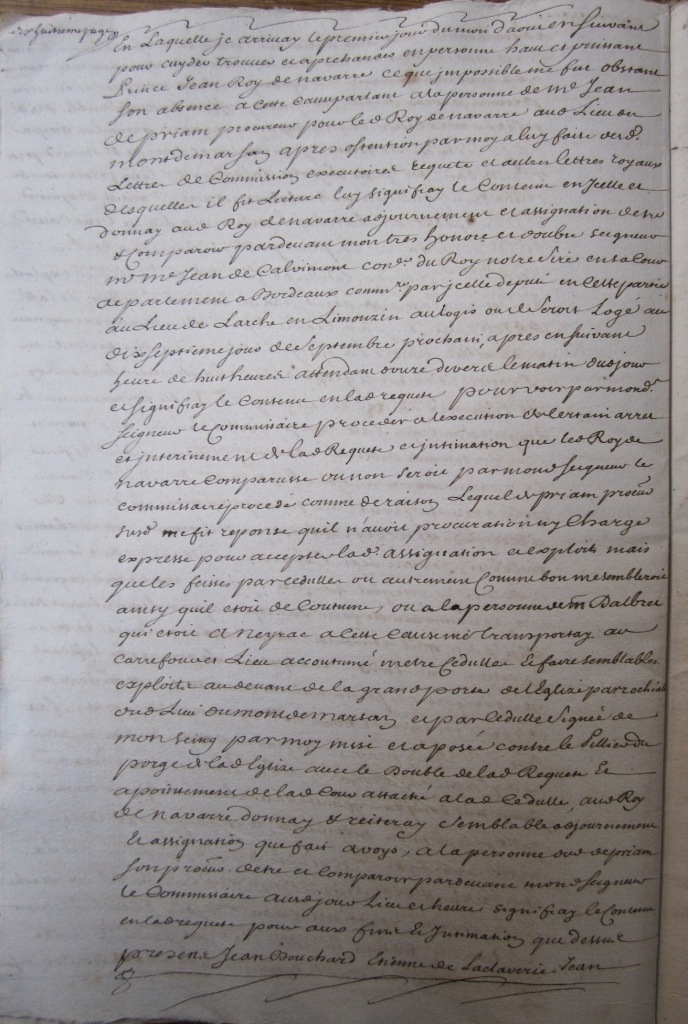 dixhuitieme page
En Laquelle je arrivay le premier jour du mois daoust en suivant
pour cuyder trouver et aprehander en personne haut et puissant
Prince Jean Roy de navarre ce que impossible me fut obstant
son absence a cette cause partant a la personne de me Jean
de priam procureur pour led Roy de navarre aud Lieu du
montdemarsan apres ostention par moy a luy faite desd.
Lettres de Commission executoires requete et autres lettres royaux
desquelles il fit Lecture luy signifiay le Contenu en Jcelles et
donnay aud Roy de navarre adjournement et assignation detre
& Comparoir pardevant mon tres honoré et doubté seigneur
mr Me Jean de Calvimont coner. du Roy notre Sire en sa Cour
de parlement a Bordeaux commre. par jcelle deputé en cette partie
au Lieu de Larche en Limouzin au logis ou il seroit Logé au
dix septieme jour de Septembre prochain, apres en suivant
heure de huit heures attendant devers le matin dud jour
et signifiay le Contenu en lad requete pour voir par mond.
seigneur le Commissaire proceder a lexecution de certain arret
et interinement de lad Requete et jntimation que led Roy de
navarre Comparusse ou non seroit par mond seigneur le
commissaire procedé comme de raison Lequel de priam procur
susd me fit reponse quil n'avoit procuration ny Charge
expresse pour accepter lad. assignation et exploits mais
que les feisse par cedulles ou autrement Comme bon me sembleroit
ainsy quil etoit de Coutume, ou a la personne de mr Dalbret
qui etoit a Neyrac a cette Cause me transportay au
carrefour et Lieu accoutumé metre Cedulles & faire semblables
exploits au devant de la grand porte de l'Eglize parrochiale
dud Lieu du mont de marsan et par Cedulle signée de
mon seing par moy mise et aposée contre le Pillier du
porge de lad Eglize avec le Double de lad Requete Et
apointement de lad Cour attaché a lad Cedulle, aud Roy
de navarre donnay & reiteray semblable adjournement
Et assignation que fait avoys, a la personne dud de priam
son procur. detre et Comparoir pardevant mond seigneur
le Commissaire ausd jour Lieu et heure signifiay le Contenu
en lad requete pour aux fins & Jntimation que dessus
presens Jean Bouchard Etienne de Laclaverie Jean